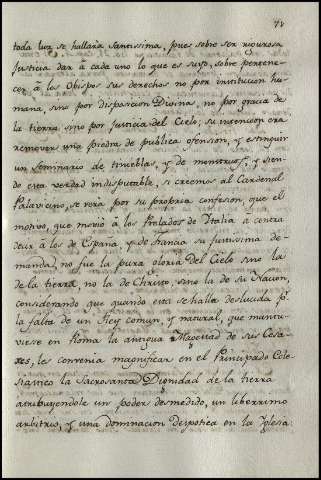 toda luz se hallarà Santissima, pues sobre ser rigurosa
Justicia dar à cada uno lo que es suyo, sobre pertene-
cer à los Obispos sus derechos no por institucion hu-
mana, sino por disposicion Divina, no por gracia de
la tierra sino por Justicia del Cielo; su intencion era
remover una piedra de publica ofension, y extinguir
un seminario de tinieblas, y de monstruos, y sien-
do esta verdad indisputable, si creemos al Cardenal
Palavicino, se verà por su propria confesion, que el
motivo, que moviò à los Prelados de Italia à contra
decir à los de Espana, y de Francia su justissima de-
manda, no fue la pura gloria del Cielo sino la
de la tierra, no la de Christo, sino la de su Nacion,
considerando que quando esta se halla deslucida pr.
la falta de un Rey comun, y natural, que mantu-
viese en Roma la antigua Magestad de sus Cesa-
res, les convenia magnificar en el Principado Ecle-
siastico la Sacrosanta Dignidad de la tierra
atribuyendole un poder desmedido, un liberrimo
arbitrio, y una dominacion Despotica en la Iglesia